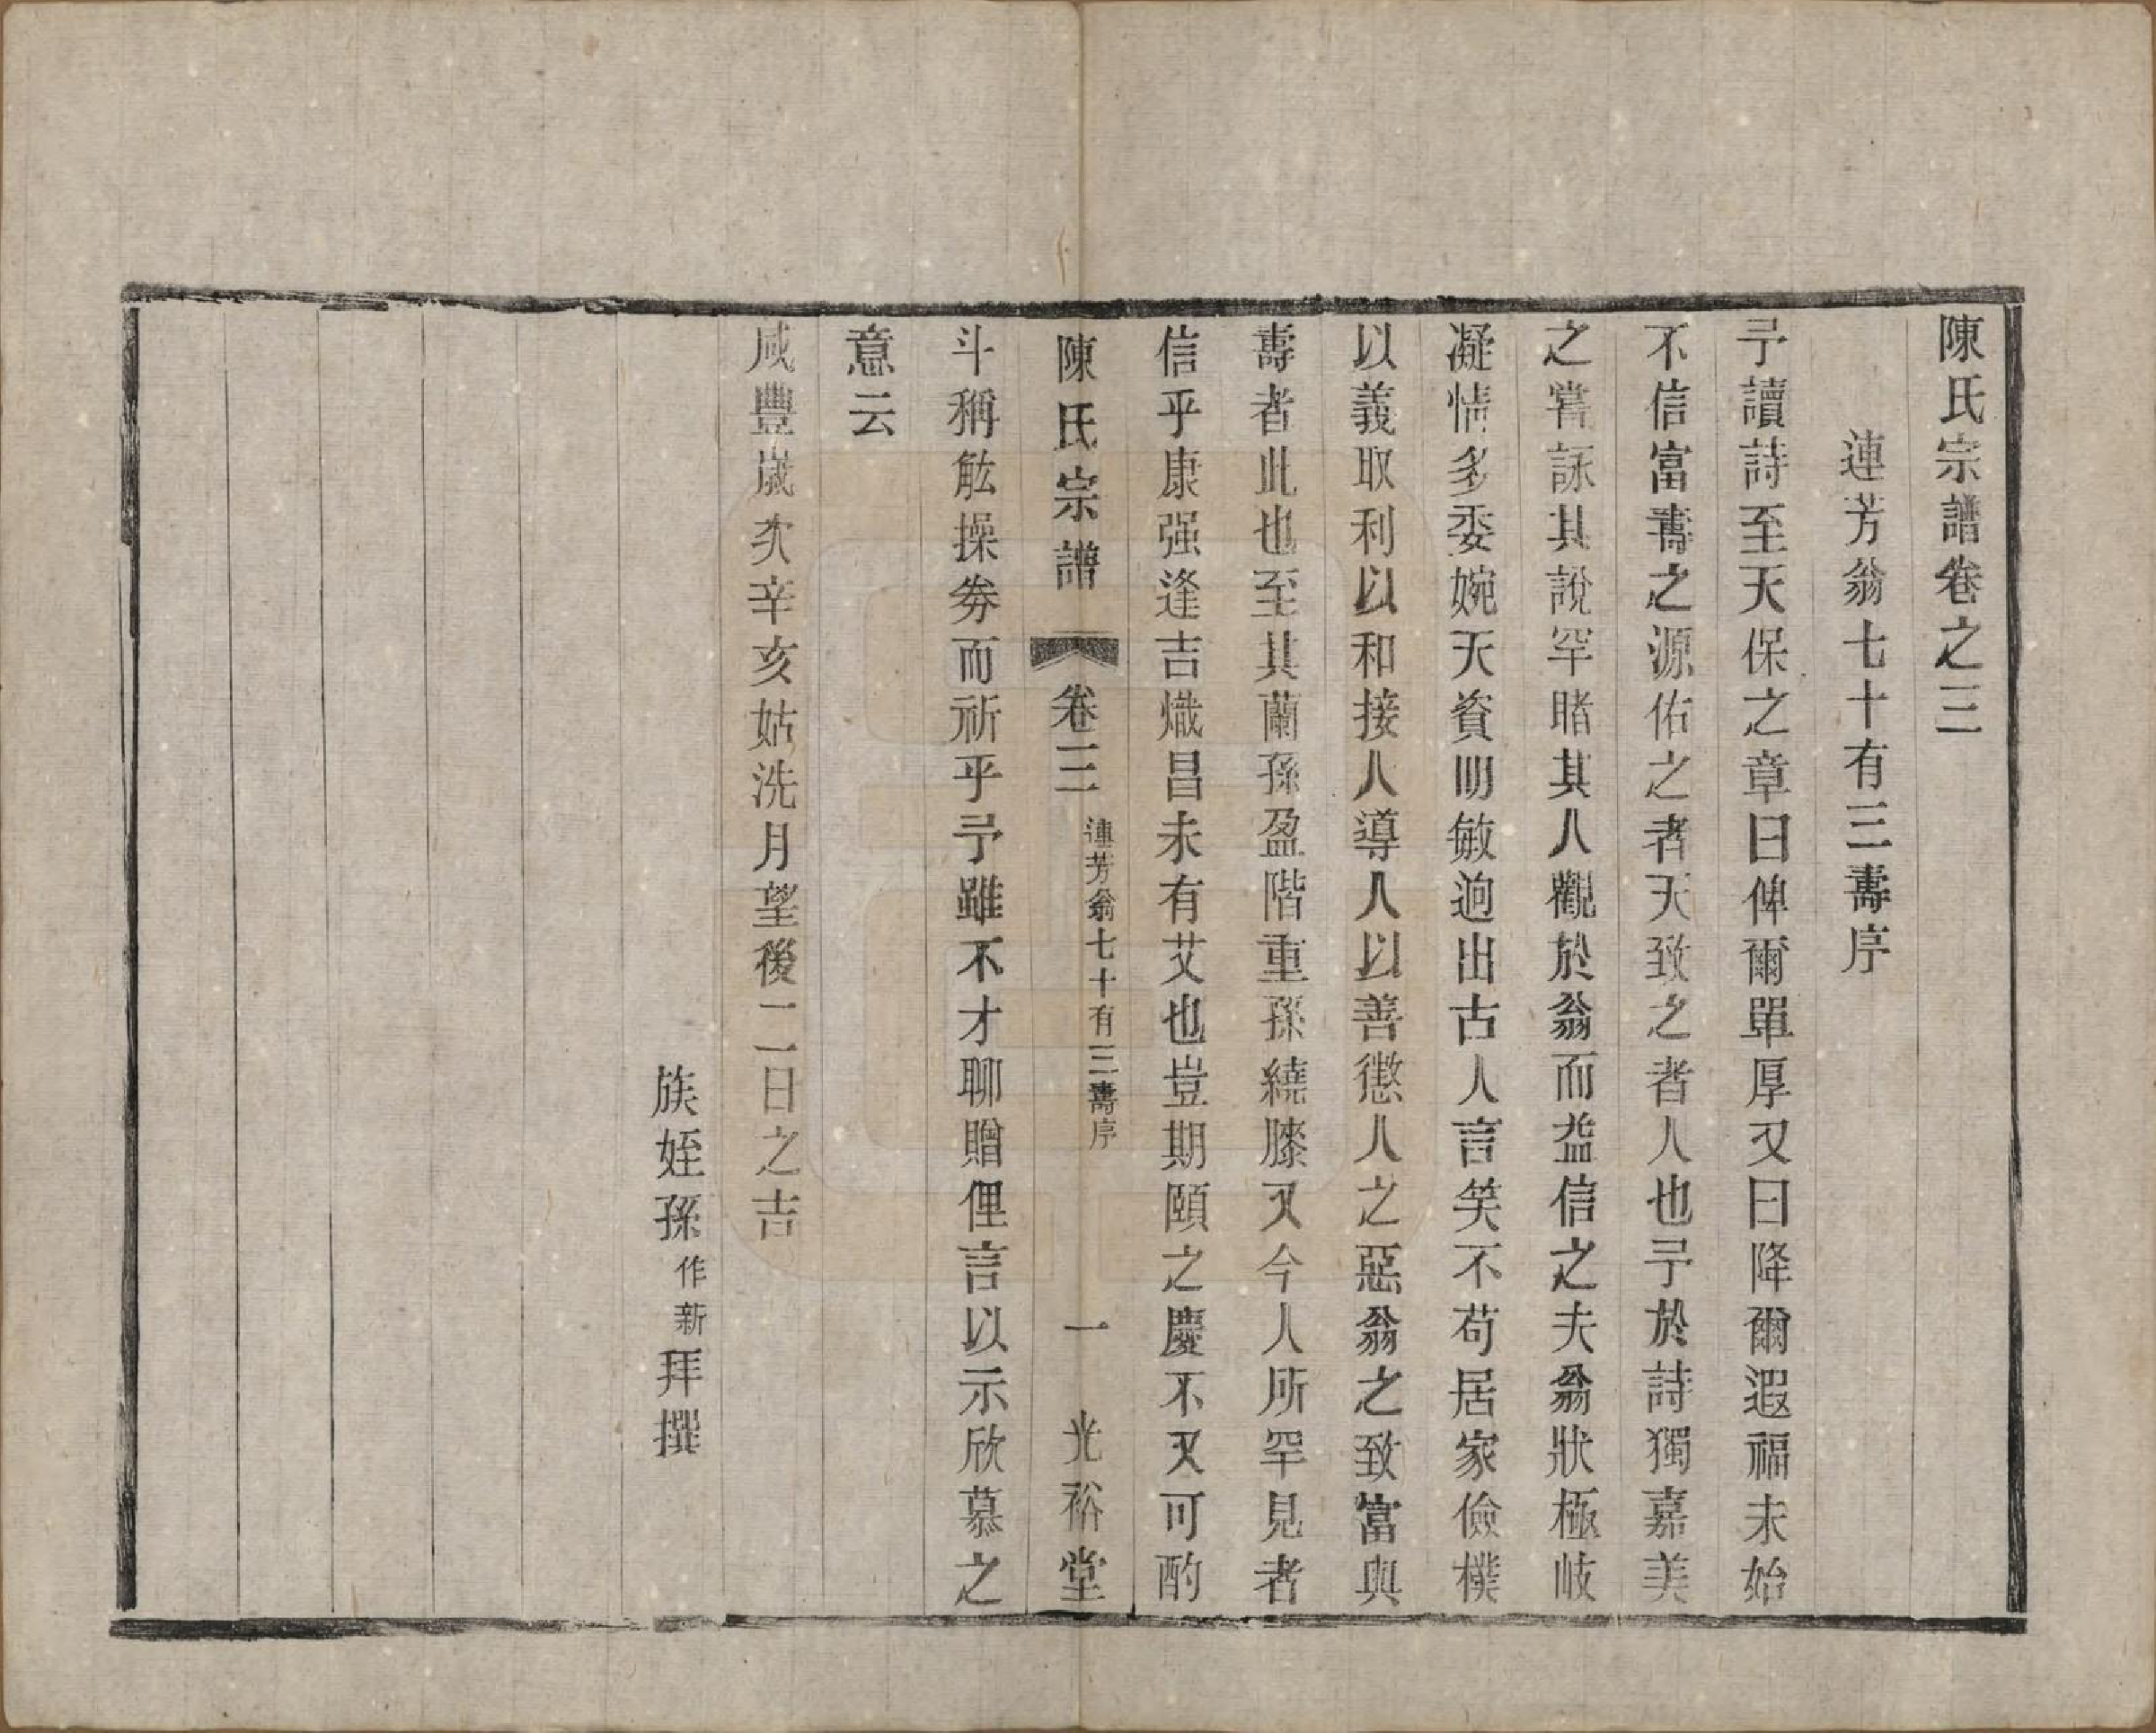 陳氏宗譜卷之三
連芳翁七十有三壽序
予讀詩至天保之章曰俾爾單厚又曰降爾遐福未始
不信富壽之源佑之者天致之者人也予於詩獨嘉美
之嘗詠其說罕睹其人觀於翁而益信之夫翁狀極岐
凝情多委婉天資明敏迥出古人言笑不苟居家儉樸
以義取利以和接人導人以善懲人之惡翁之致富與
壽者此也至其蘭孫盈階重孫繞膝又今人所罕見者
信乎康强逢吉熾昌未有艾也豈期頤之慶不又可酌
陳氏宗譜 卷三 連芳翁七十有三壽序 一 光裕堂
斗稱觥操券而祈乎予雖不才聊贈俚言以示欣慕之
意云
咸豐歲次辛亥姑洗月望後二日之吉
族姪孫作新拜撰